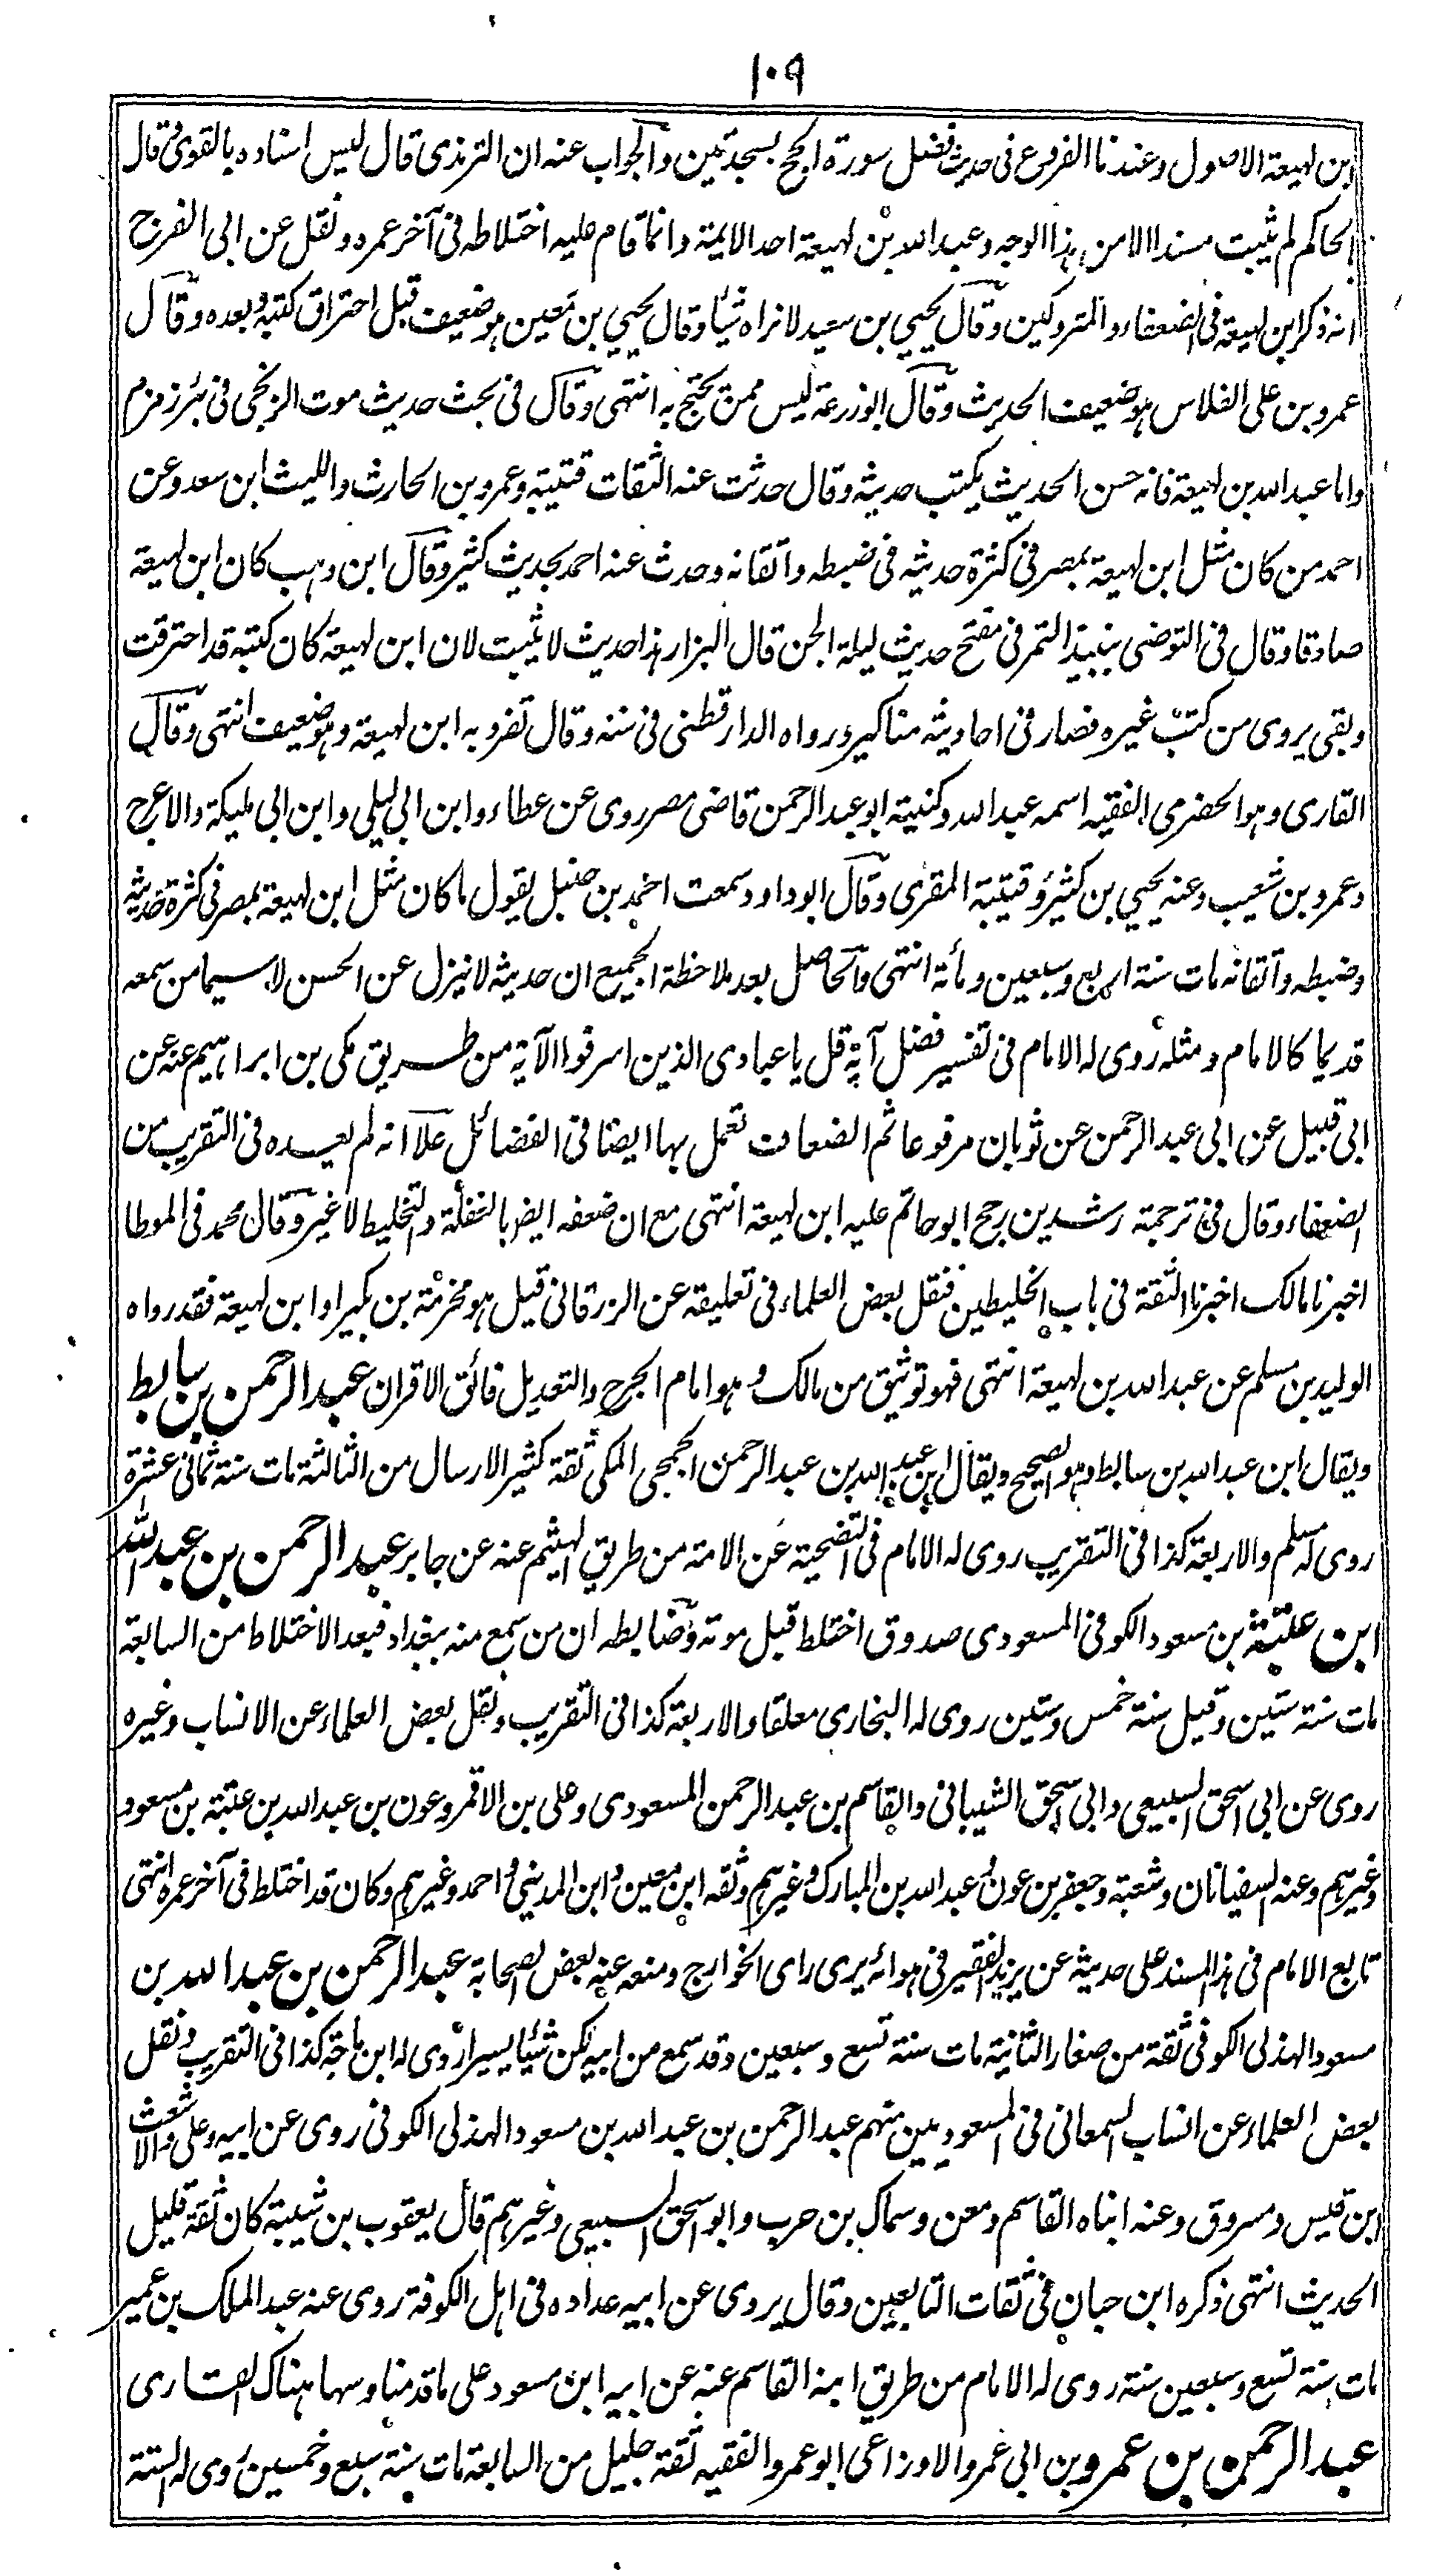 ١٠٩
ابن لهيعة الاصول وعندنا الفروع فى حديث فضل سورة الحج بسجدتين والجواب عنه ان الترمذى قال ليس اسناده بالقوى وقال
الحاكم لم يثبت مسندا الا من هذا الوجه وعبد الله بن لهيعة احد الايمة وانما قام عليه اختلاطه فى آخر عمره ونقل عن ابى الفرج
انه ذكر ابن لهيعة فى الضعفاء والمتروكين وقال يحيى بن سعيد لا نراه شيئا وقال يحيى بن معين هو ضعيف قبل احتراق كتبه وبعده وقال
عمرو بن على الفلاس هو ضعيف الحديث وقال ابو زرعة ليس ممن يحتج به انتهى وقال فى بحث حديث موت الزنجى فى بئر زمزم
واما عبد الله بن لهيعة فانه حسن الحديث يكتب حديثه وقال حدثت عنه الثقات قتيبة وعمرو بن الحارث والليث ابن سعد وعن
احمد من كان مثل ابن لهيعة بمصر فى كثرة حديثه فى ضبطه واتقانه وحدث عنه احمد بحديث كثير وقال ابن وهب كان ابن لهيعة
صادقا وقال فى التوضى بنبيذ التمر فى مفتح حديث ليلة الجن قال البزار هذا حديث لا يثبت لان ابن لهيعة كان كتبه قد احترقت
وبقى يروى من كتب غيره فصار فى احاديثه مناكير ورواه الدارقطنى فى سننه وقال تفرد به ابن لهيعة وهو ضعيف انتهى وقال
القارى وهو الحضرمى الفقيه اسمه عبد الله وكنيته ابو عبد الرحمن قاضى مصر روى عن عطاء وابن ابى ليلى وابن ابى مليكة والاعرج
وعمرو بن شعيب وعنه يحيى بن كثير وقتيبة المقرى وقال ابو داود سمعت احمد بن حنبل يقول ما كان مثل ابن لهيعة بمصر فى كثرة حديثه
وضبطه واتقانه مات سنة اربع وسبعين ومأئة انتهى والحاصل بعد ملاحظة الجميع ان حديثه لا ينزل عن الحسن لا سيما من سمعه
قديما كالامام ومثله روى له الامام فى تفسير فضل آية قل يا عبادى الذين اسرفوا الآية من طريق مكى بن ابراهيم عنه عن
ابى قبيل عن ابى عبد الرحمن عن ثوبان مرفوعا ثم الضعاف تعمل بها ايضا فى الفضائل علا انه لم يعده فى التقريب من
الضعفاء وقال فى ترجمة رشدين رجح ابو حاتم عليه ابن لهيعة انتهى مع ان ضعفه ايضا بالغفلة والتخليط لا غير وقال محمد فى الموطا
اخبرنا مالك اخبرنا الثقة فى باب الخليطين فنقل بعض العلماء فى تعليقه عن الزرقانى قيل هو مخرمة بن بكير او ابن لهيعة فقد رواه
الوليد بن مسلم عن عبد الله بن لهيعة انتهى فهو توثيق من مالك وهو امام الجرح والتعديل فائق الاقران عبد الرحمن بن سابط
ويقال ابن عبد الله بن سابط وهو الصحيح ويقال ابن عبد الله بن عبد الرحمن الجمحى المكى ثقة كثير الارسال من الثالثة مات سنة ثمانى عشرة
روى له مسلم والاربعة كذا فى التقريب روى له الامام فى التضحية عن الامة من طريق الهيثم عنه عن جابر عبد الرحمن بن عبد الله
ابن عتبة بن مسعود الكوفى المسعودى صدوق اختلط قبل موته وضابطه ان من سمع منه ببغداد فبعد الاختلاط من السابعة
مات سنة ستين وقيل سنة خمس وستين روى له البخارى معلقا والاربعة كذا فى التقريب ونقل بعض العلماء عن الانساب وغيره
روى عن ابى اسحق السبيعى وابى اسحق الشيبانى والقاسم بن عبد الرحمن المسعودى وعلى بن الاقمر وعون بن عبد الله بن عتبة بن مسعود
وغيرهم وعنه السفيانان وشعبة وجعفر بن عون وعبد الله بن المبارك وغيرهم وثقه ابن معين وابن المدينى واحمد وغيرهم وكان قد اختلط فى آخر عمره انتهى
تابع الامام فى هذا المسند على حديثه عن يزيد الفقير فى هوائه يرى راى الخوارج ومنعه عنه بعض الصحابة عبد الرحمن بن عبد الله بن
مسعود الهذلى الكوفى ثقة من صغار الثانية مات سنة تسع وسبعين وقد سمع من ابيه لكن شيئا يسيرا روى له ابن ماجة كذا فى التقريب ونقل
بعض العلماء عن انساب السمعانى فى المسعوديين منهم عبد الرحمن بن عبد الله بن مسعود الهذلى الكوفى روى عن ابيه وعلى والاشعث
ابن قيس ومسروق وعنه ابناه القاسم ومعن وسماك بن حرب وابو اسحق السبيعى وغيرهم قال يعقوب بن شيبة كان ثقة قليل
الحديث انتهى ذكره ابن حبان فى ثقات التابعين وقال يروى عن ابيه عداده فى اهل الكوفة روى عنه عبد الملك بن عمير
مات سنة تسع وسبعين سنة روى له الامام من طريق ابنه القاسم عنه عن ابيه ابن مسعود على ما قدمنا وسها هناك القارى
عبد الرحمن بن عمرو بن ابى عمرو الاوزاعى ابو عمرو الفقيه ثقة جليل من السابعة مات سنة سبع وخمسين روى له الستة